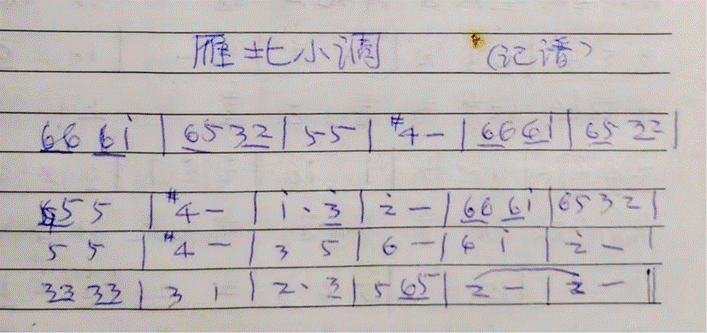 雁北小调 (记谱)
66 6i | 6532 | 55 | #4- | 66 6i | 65 32 |
55 5 | #4- | i·3 | 2- | 66 6i | 6532 |
5 5 | #4- | 3 5 | 6- | 6 i | 2- |
33 33 | 3 1 | 2·3 | 5 65 | 2- | 2- ||